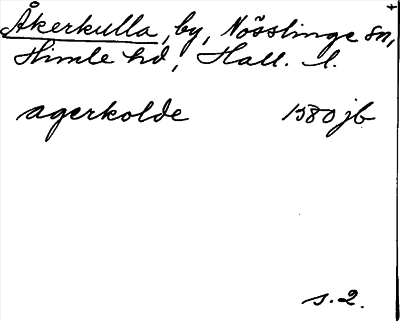 Åkerkulla, by, Nösslinge sn,
Himle hd, Hall. l.
agerkolde 1580 jb
s. 2.